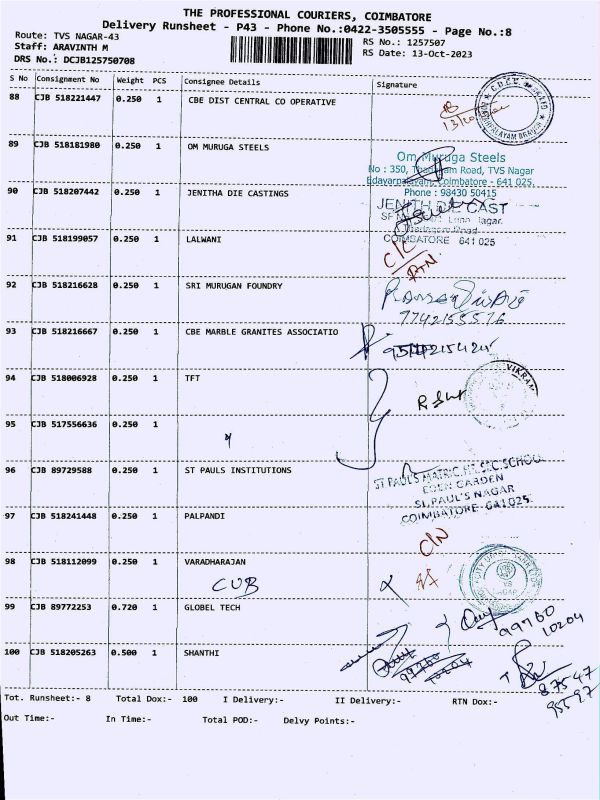 THE PROFESSIONAL COURIERS, COIMBATORE
Delivery Runsheet - P43 - Phone No.:0422-3505555 - Page No.:8
Route: TVS NAGAR-43
Staff: ARAVINTH M
DRS No.: DCJB125750708
RS No.: 1257507
RS Date: 13-Oct-2023
S No Consignment No Weight PCS Consignee Details Signature
88 CJB 518221447 0.250 1 CBE DIST CENTRAL CO OPERATIVE
89 CJB 518181980 0.250 1 OM MURUGA STEELS
Om Muruga Steels
No : 350, Thadagam Road, TVS Nagar
Edayarpalayam, Coimbatore - 641 025.
Phone : 98430 50415
90 CJB 518207442 0.250 1 JENITHA DIE CASTINGS
JENITH DIE CAST
COIMBATORE 641 025
91 CJB 518199057 0.250 1 LALWANI
92 CJB 518216628 0.250 1 SRI MURUGAN FOUNDRY
7742155576
93 CJB 518216667 0.250 1 CBE MARBLE GRANITES ASSOCIATIO
94 CJB 518006928 0.250 1 TFT
VIKRAM
95 CJB 517556636 0.250 1
96 CJB 89729588 0.250 1 ST PAULS INSTITUTIONS
ST PAUL'S MATRIC.HR.SEC.SCHOOL
EDEN GARDEN
ST.PAUL'S NAGAR
COIMBATORE 641025
97 CJB 518241448 0.250 1 PALPANDI
98 CJB 518112099 0.250 1 VARADHARAJAN
CUB
99 CJB 89772253 0.720 1 GLOBEL TECH
99760
10204
100 CJB 518205263 0.500 1 SHANTHI
87547
95597
Tot. Runsheet:- 8 Total Dox:- 100 I Delivery:- II Delivery:- RTN Dox:-
Out Time:- In Time:- Total POD:- Delvy Points:-